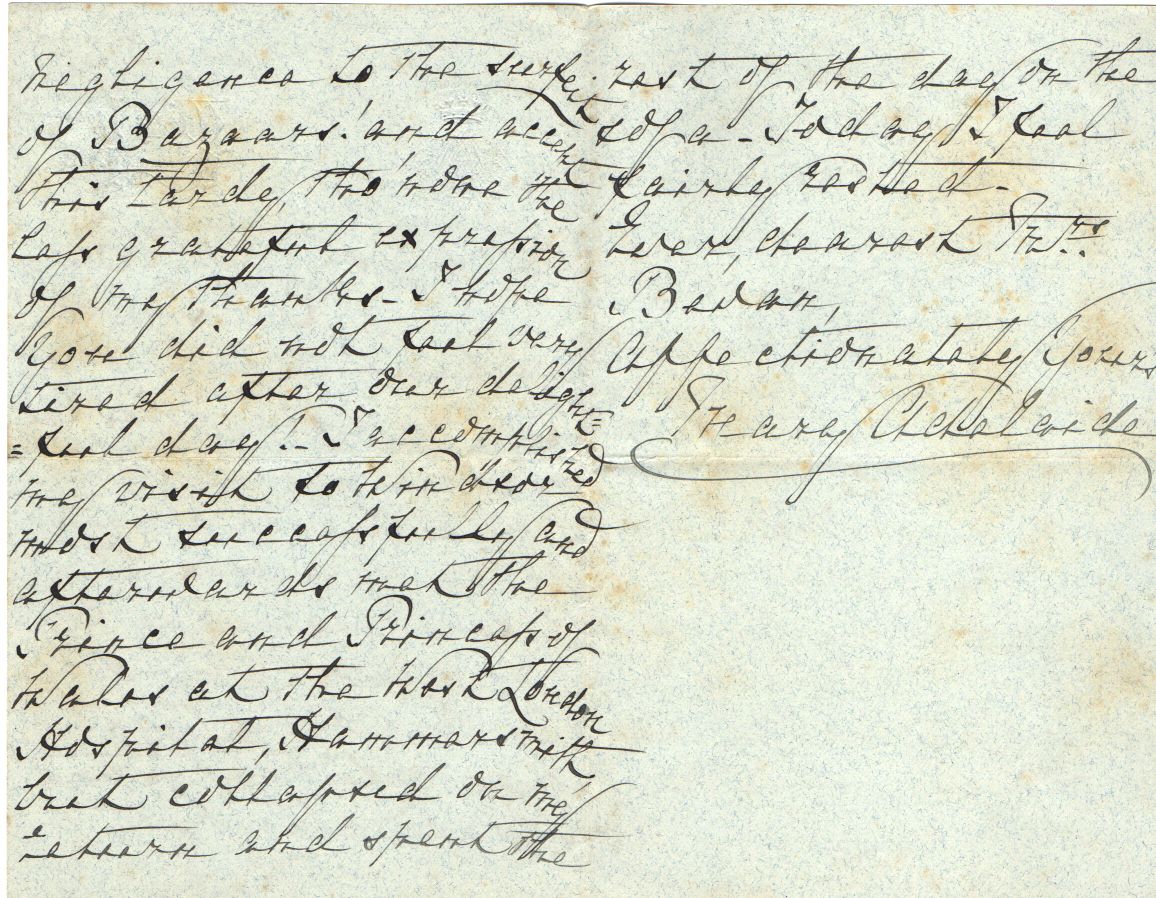 negligence to the surfeit
of Bazaars! and accept
this tardy, tho' none the
less grateful expression
of my thanks - I hope
you did not feel very
tired after our delight=
=ful day!.. I accomplished
my visit to Windsor
most successfully and
afterwards met the
Prince and Princess of
Wales at the West London
Hospital, Hammersmith,
but collapsed on my
return and spent the
rest of the day on the
sofa - Today I feel
fairly rested -
Ever, dearest Mrs.
Bevan,
Affectionately Yours
Mary Adelaide